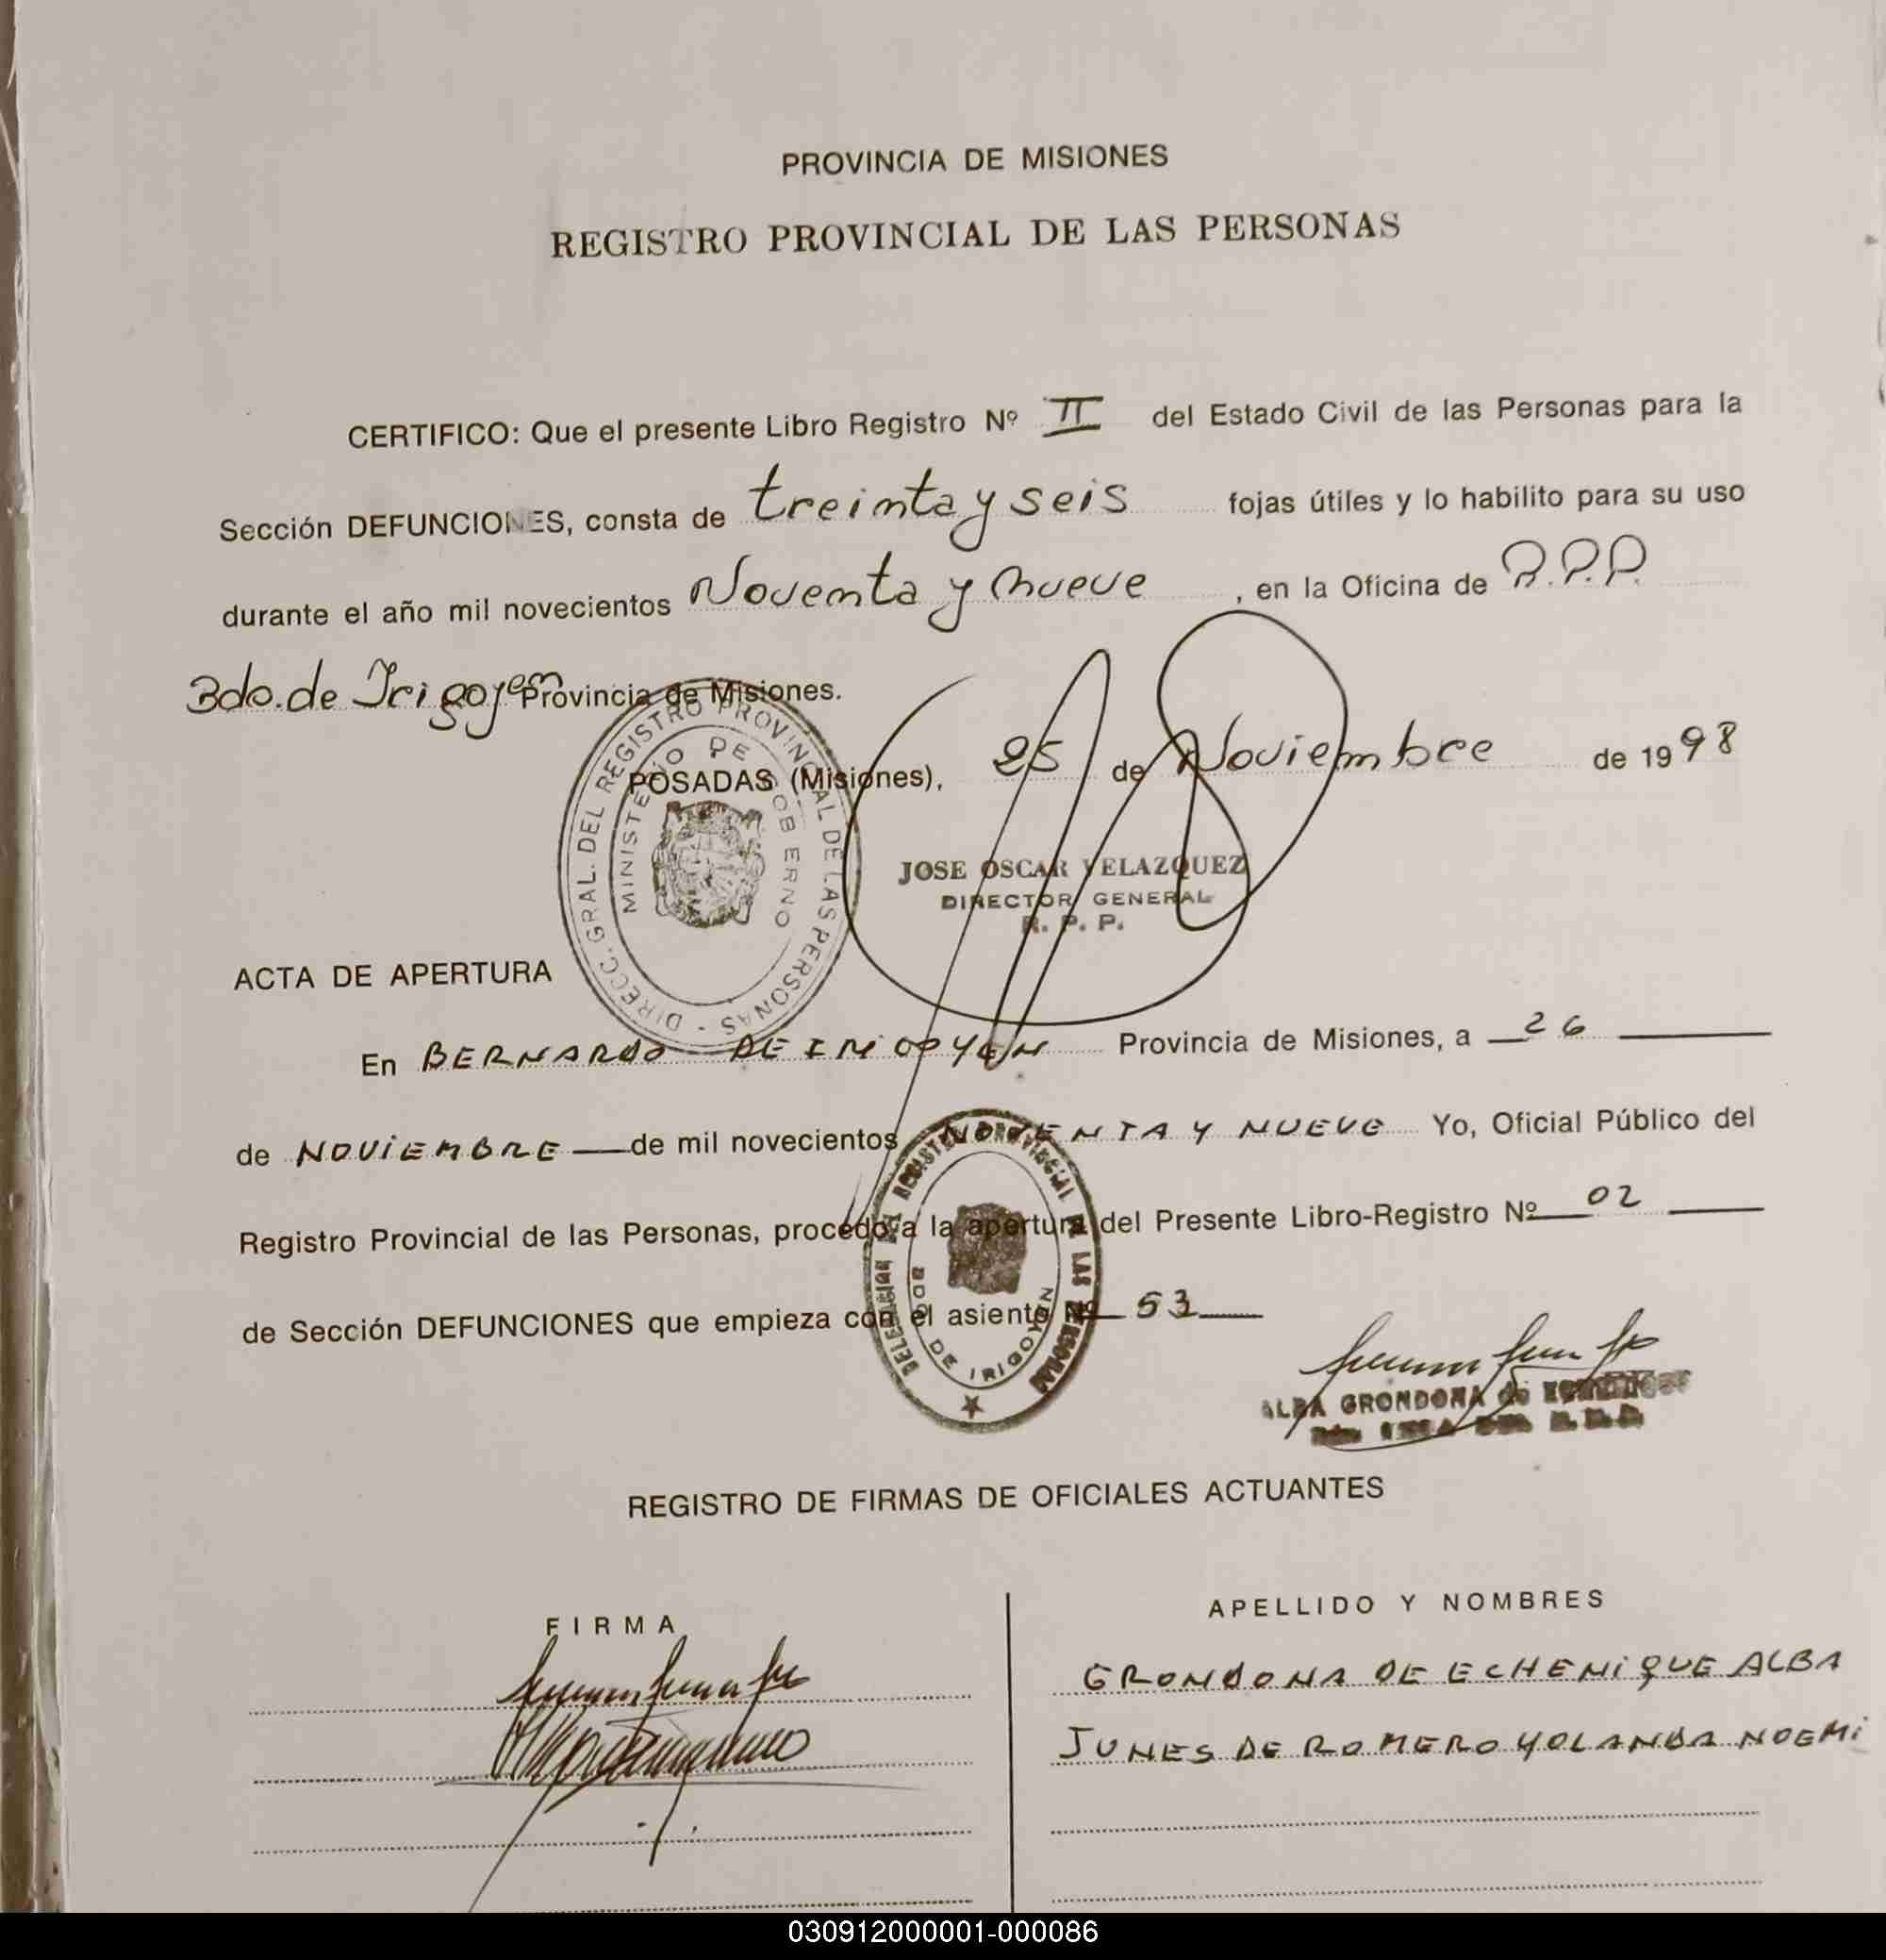 PROVINCIA DE MISIONES
REGISTRO PROVINCIAL DE LAS PERSONAS
CERTIFICO: Que el presente Libro Registro Nº II del Estado Civil de las Personas para la
Sección DEFUNCIONES, consta de treinta y seis fojas útiles y lo habilito para su uso
durante el año mil novecientos Noventa y Nueve, en la Oficina de R.P.P.
Bdo. de Irigoyen Provincia de Misiones.
POSADAS (Misiones), 25 de Noviembre de 1998
DIRECC. GRAL. DEL REGISTRO PROVINCIAL DE LAS PERSONAS -
MINISTERIO DE GOBIERNO
JOSE OSCAR VELAZQUEZ
DIRECTOR GENERAL
R. P. P.
ACTA DE APERTURA
En BERNARDO DE IRIGOYEN Provincia de Misiones, a 26
de NOViEMBRE de mil novecientos NOVENTA Y NUEVE Yo, Oficial Público del
Registro Provincial de las Personas, procedo a la apertura del Presente Libro-Registro Nº 02
de Sección DEFUNCIONES que empieza con el asiento Nº 53
DELEGACION DEL REGISTRO PROVINCIAL DE LAS PERSONAS
BDO. DE IRIGOYEN
ALBA GRONDONA de
REGISTRO DE FIRMAS DE OFICIALES ACTUANTES
FIRMA
APELLIDO Y NOMBRES
GRONDONA DE ECHENiQUE ALBA
JUNES DE ROMERO YOLANDA NOEMi
030912000001-000086